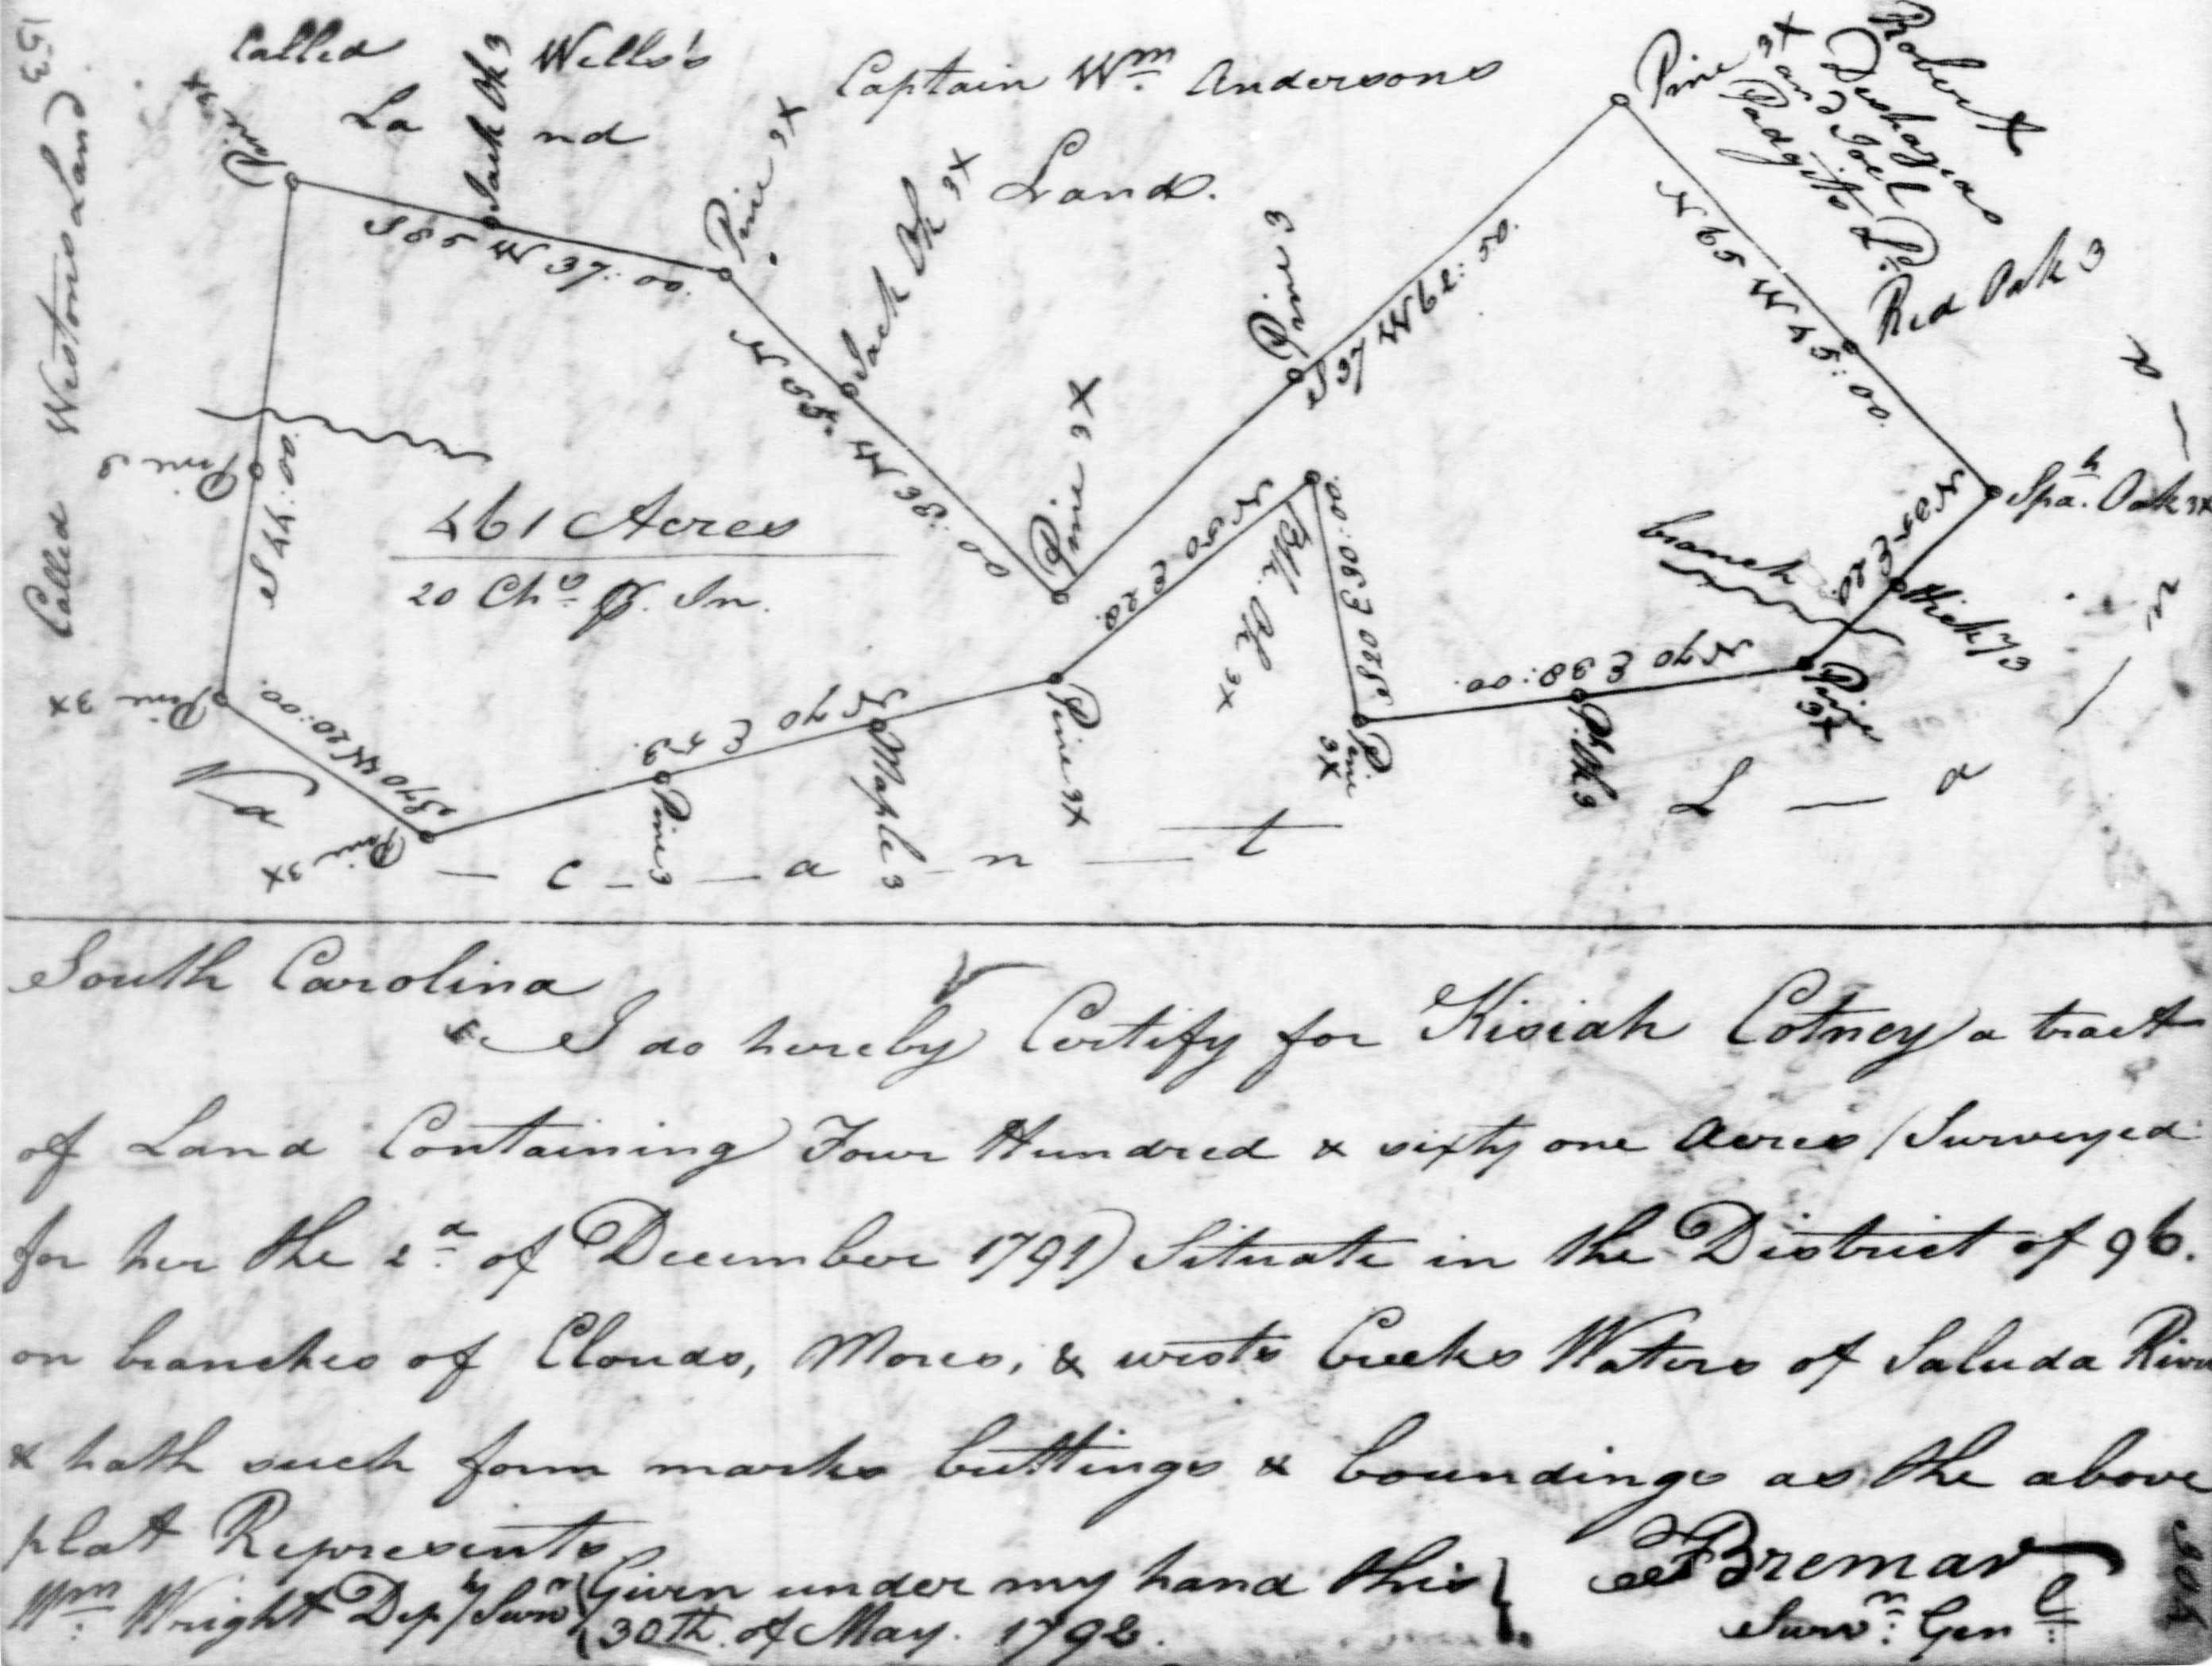 Called Wells's
La nd
Jack Ok 3
Captain Wm Andersons
Land.
Pine 3X
Robert
Deshazeas
and Joel
Padgitts Ld.
Called Westons Land
Pine 3X
S 85 W 37:00.
Pine 3X
Jack Ok 3X
Pine 3X
Pine 3
Red Oak 3
N 45:00.
Spah. Oak 3X
branch
Hick'y 3
Pine 3X
N 70 E 38:00.
P. Ok 3
Pine 3X
S 20 E 30:00.
Blk. Ok 3X
N 50 E 20.
Pine 3X
N 70 E 53.
Maple 3
Pine 3
Pine 3X
S 70 W 20:00.
Pine 3X
S 44:00
Pine 3
461 Acres
20 Chs. P. In.
Va — c — a — n — t — L — a — n — d
South Carolina
I do hereby Certify for Kisiah Cotney a tract
of Land Containing Four Hundred & sixty one Acres (Surveyed
for her the 2d of December 1791) Situate in the District of 96.
on branches of Clouds, Mores, & wests Creeks Waters of Saluda River
& hath such form marks buttings & boundings as the above
plat Represents
Wm. Wright Depy Survr Given under my hand this
30th. of May. 1792.
F Bremar
Survr. Genl